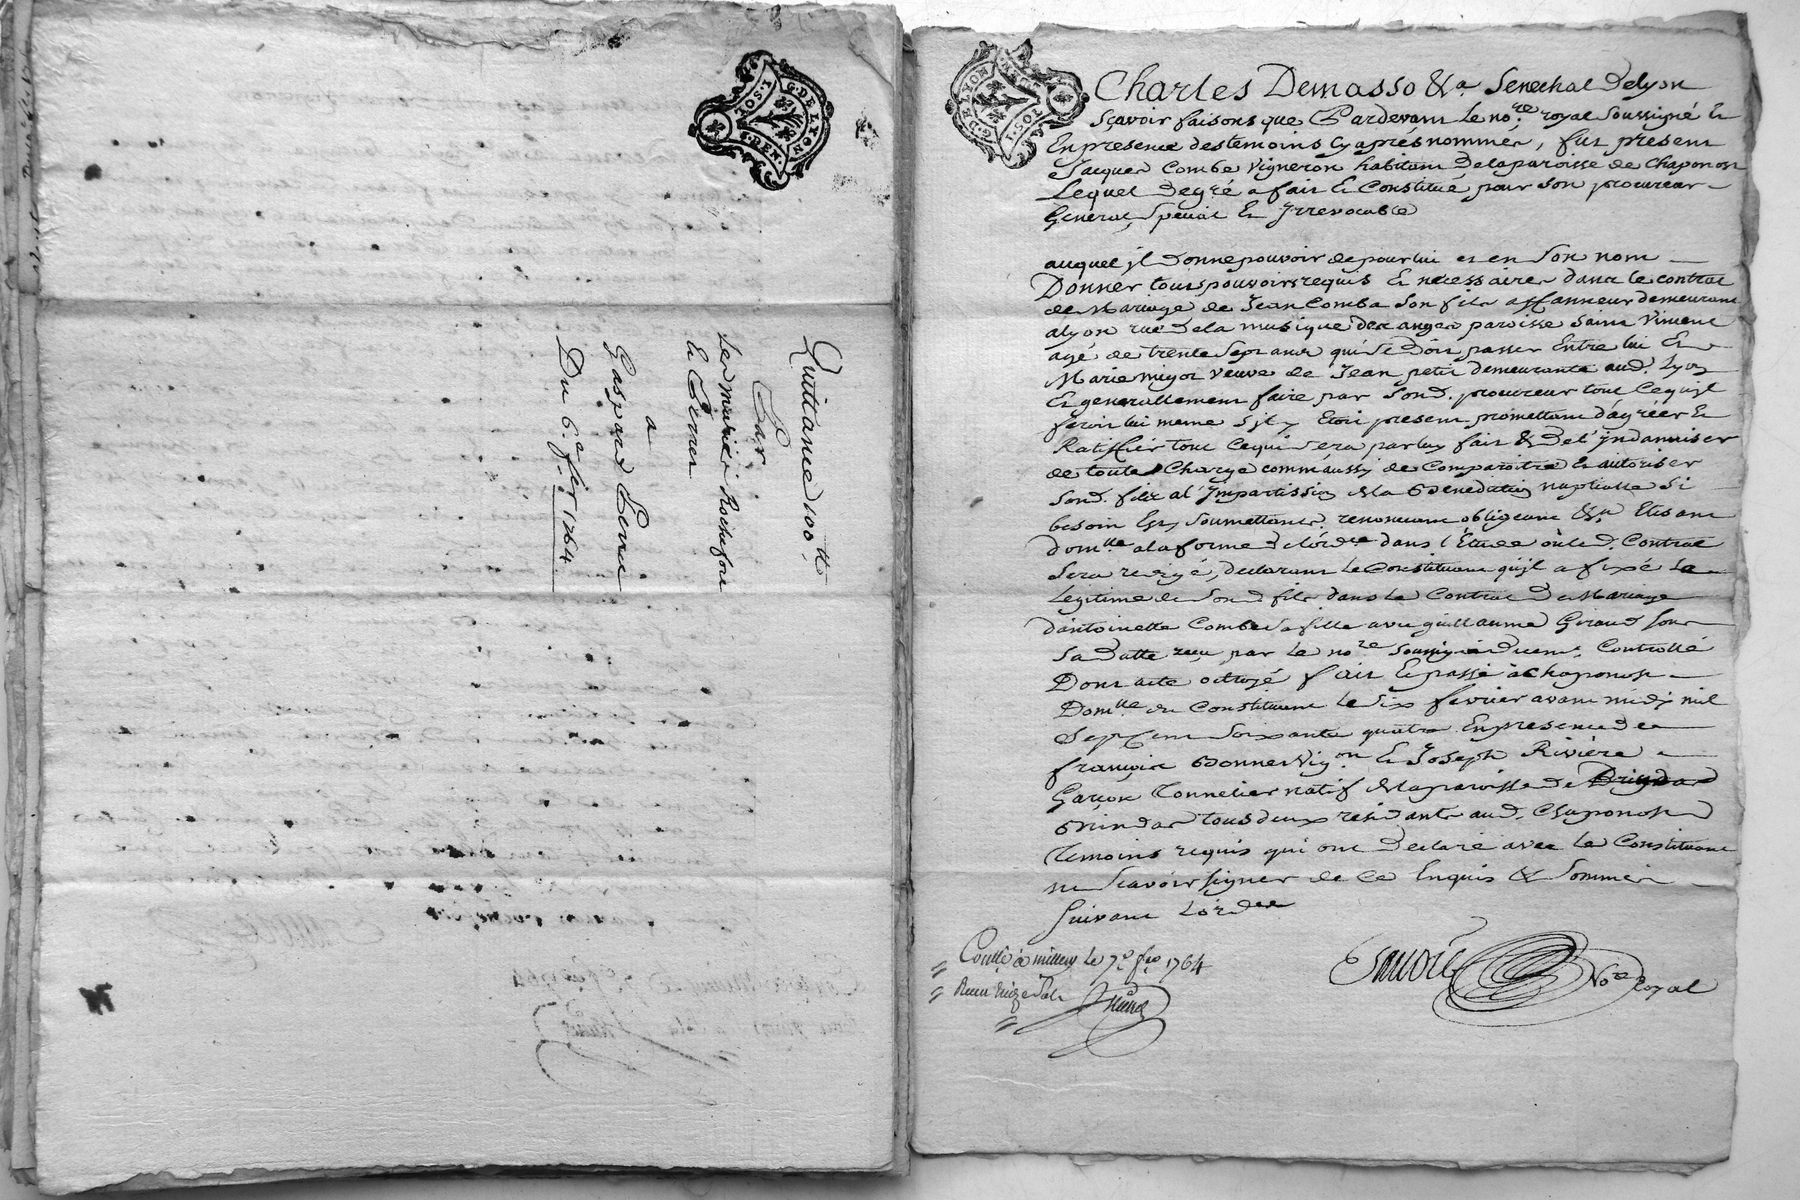 Quittance 100ᵗᵗ
Par
Les mariés Rochefort
Et Terrer
a
Gaspard
Du 6.e fer 1764
I. SOL.
G. DE LYON
8. DEN.
Charles Demasso &a Senechal Delyon
Sçavoir faisons que Pardevant Le no.re royal Soussigné Et
En presence des temoins Cy aprés nommés, fut present
Jacques Combe Vigneron habitant De la paroisse de Chaponost
Lequel De gré a fait Et Constitué pour Son procureur
General, Special Et Jrrevocable
auquel jl Donne pouvoir de pour lui et en Son nom
Donner tous pouvoirs requis Et necessaires dans le contrat
de Mariage de Jean Combe Son fils affanneur demeurant
a lyon rue De la musique des anges paroisse Saint Vincent
agé de trente Sept ans qui Se Doit passer Entre lui Et
Marie migot veuve de Jean petit demeurante aud. Lyon
Et generallement faire par Sond. procureur tout Ce qu'jl
feroit lui meme S'jl y Etoit present promettant d'agréer Et
Ratiffier tout Ce qui Sera par luy fait & De l'Jndamniser
de toute Charge comm'aussy de Comparoitre Et autoriser
Sond. fils a l'Jmpartission de la Benediction nuptialle Si
besoin Est, Soumettant, renoncant obligeant &a Elisant
dom.lle a la forme De l'ordce dans l'Etude où led. Contrat
Sera redigé, declarant Le Constituant qu'jl a fixé La
Legitime de Sond fils dans Le Contrat De Mariage
d'antoinette Combe Sa fille avec guillaume Giraud Sous
Sa Datte reçu par Le no.re Soussigné Duem.t Controllé
Dont acte octroyé fait Et passé à Chaponost
Dom.lle du Constituant Le Six fevrier avant midy mil
Sept Cent Soixante quatre En presence de
françois Bonnet Vig.on Et Joseph Rivière
Garçon Tonnelier natif de la paroisse de Brindas
Brindas tous deux residants aud. Chaponost
Temoins requis qui ont Declaré avec Le Constituant
ne Sçavoir Signer de Ce Enquis & Sommés
Suivant L'ordce
Contlé à millery Le 7.e feo 1764
Recu treize Sols
No.re Royal